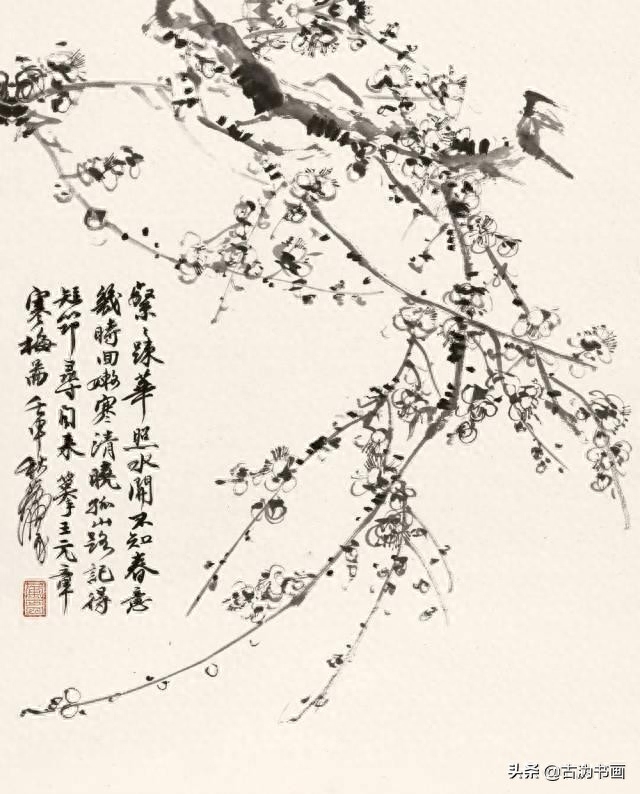 粲〻踈華照水開不知春意
幾時回嫩寒清曉孤山路記得
短筇尋句來摹王元章
寒梅啚壬申秋
头条 @古沩书画